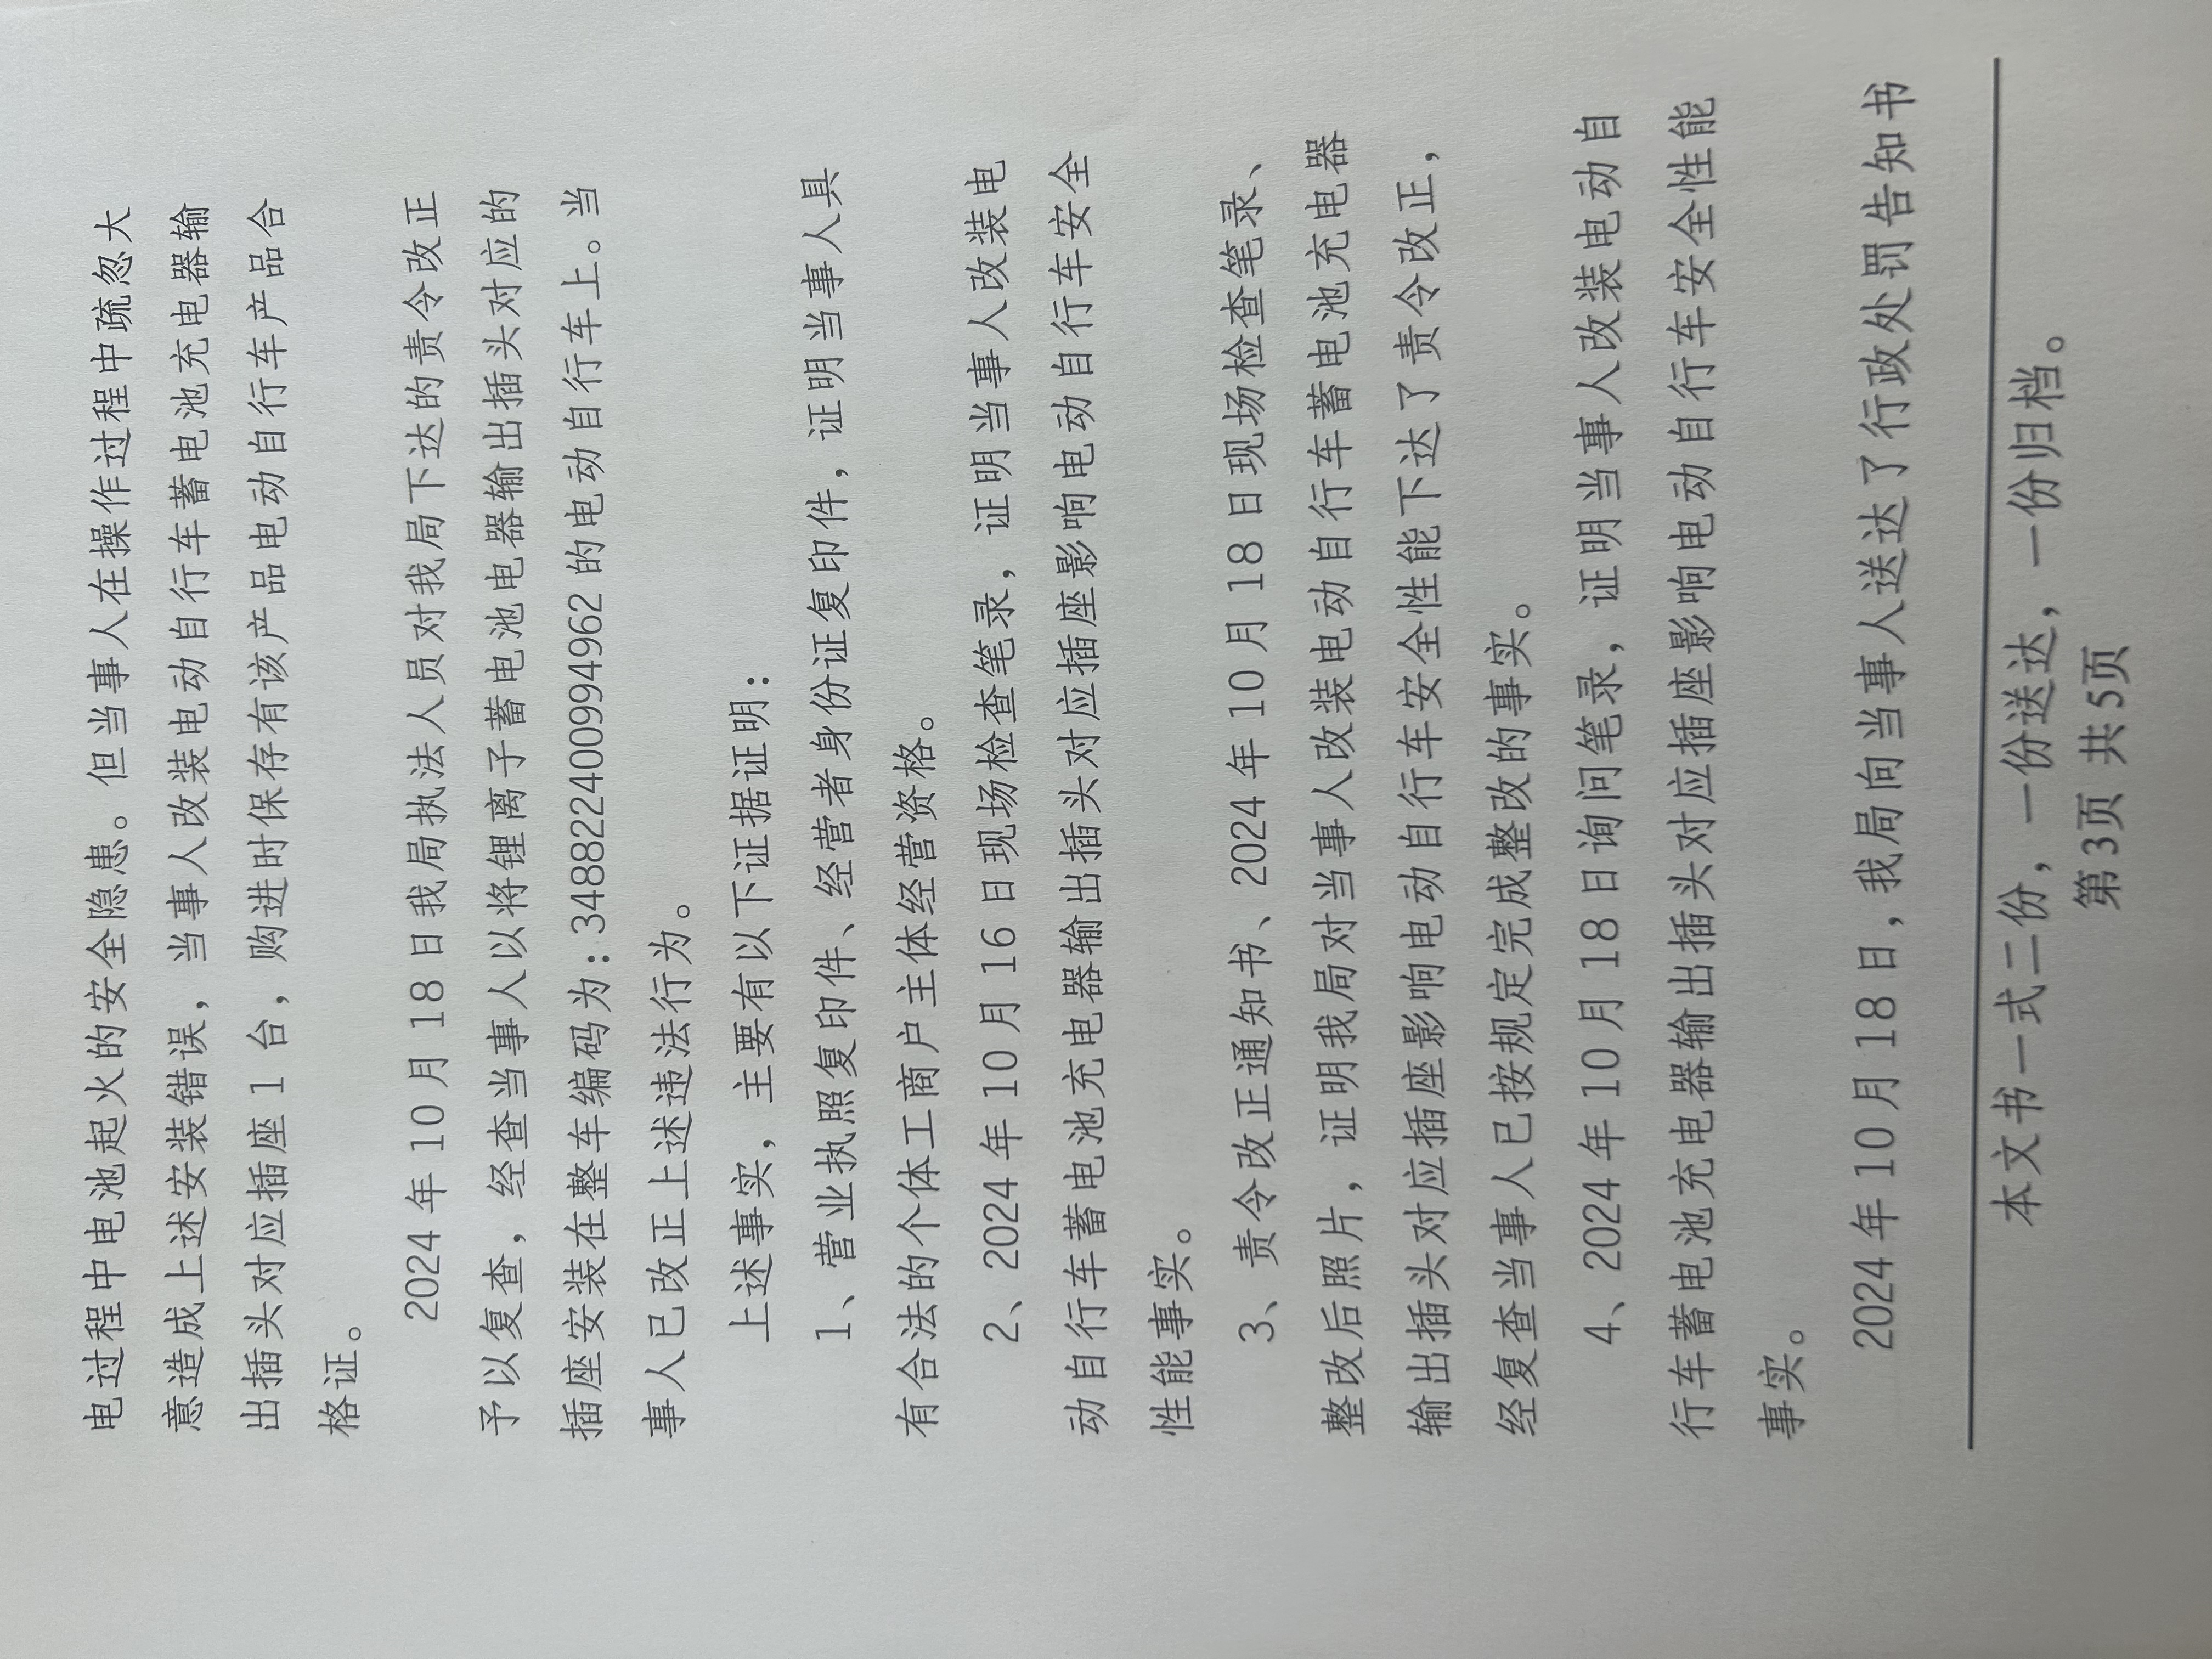 电过程中电池起火的安全隐患。但当事人在操作过程中疏忽大
意造成上述安装错误，当事人改装电动自行车蓄电池充电器输
出插头对应插座 1 台，购进时保存有该产品电动自行车产品合
格证。
2024 年 10 月 18 日我局执法人员对我局下达的责令改正
予以复查，经查当事人以将锂离子蓄电池电器输出插头对应的
插座安装在整车编码为：348822400994962 的电动自行车上。当
事人已改正上述违法行为。
上述事实，主要有以下证据证明：
1、营业执照复印件、经营者身份证复印件，证明当事人具
有合法的个体工商户主体经营资格。
2、2024 年 10 月 16 日现场检查笔录，证明当事人改装电
动自行车蓄电池充电器输出插头对应插座影响电动自行车安全
性能事实。
3、责令改正通知书、2024 年 10 月 18 日现场检查笔录、
整改后照片，证明我局对当事人改装电动自行车蓄电池充电器
输出插头对应插座影响电动自行车安全性能下达了责令改正，
经复查当事人已按规定完成整改的事实。
4、2024 年 10 月 18 日询问笔录，证明当事人改装电动自
行车蓄电池充电器输出插头对应插座影响电动自行车安全性能
事实。
2024 年 10 月 18 日，我局向当事人送达了行政处罚告知书
本文书一式二份，一份送达，一份归档。
第3页 共5页